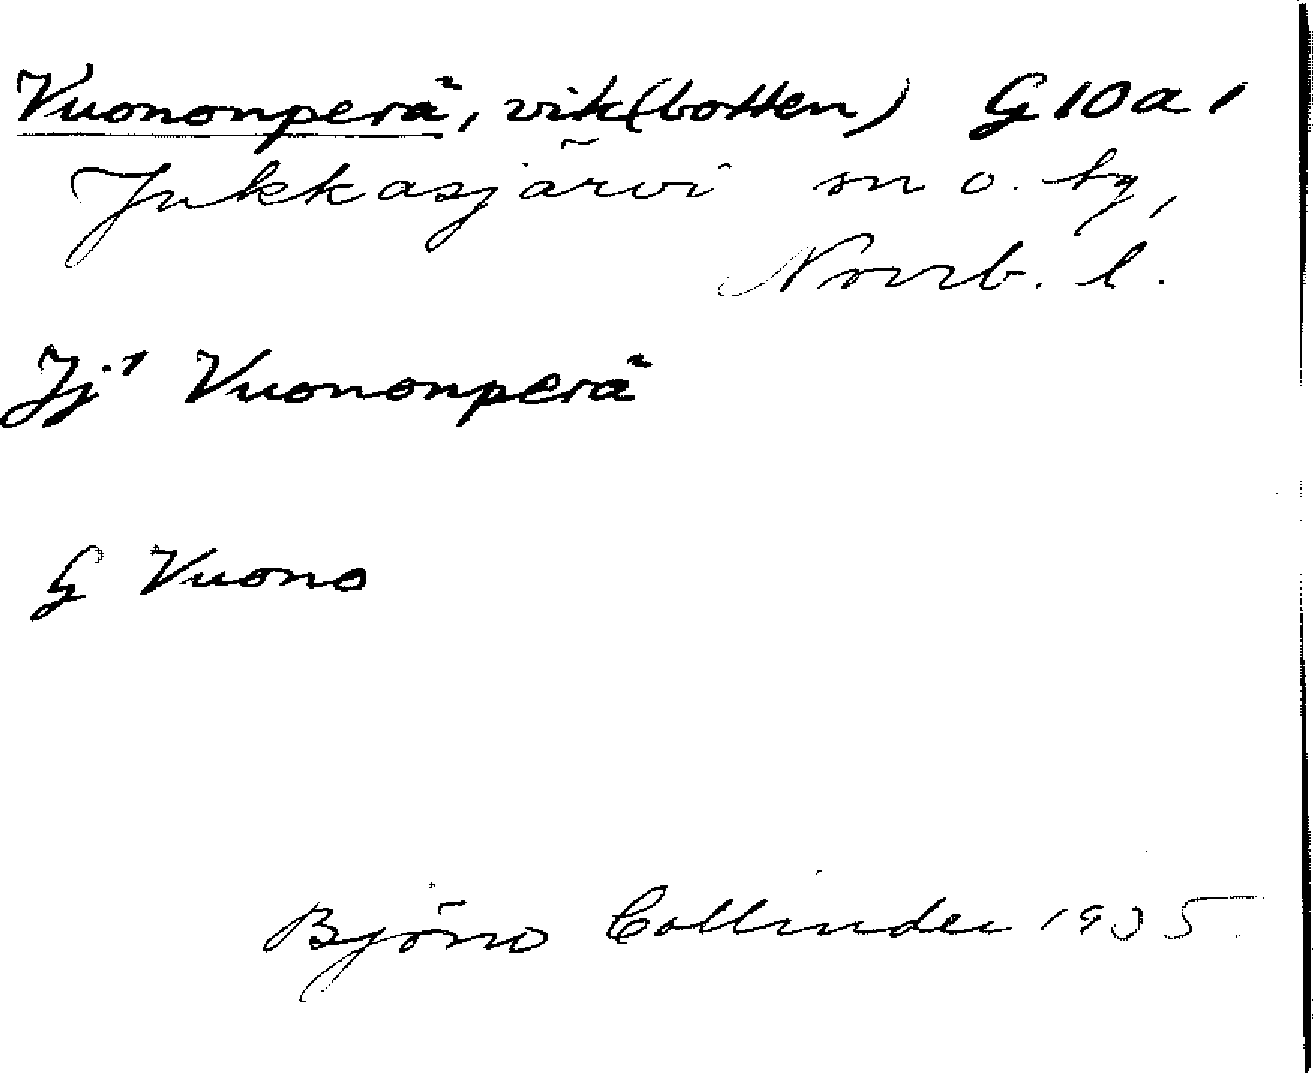 Vuononperä, vik(botten) G10a1
Jukkasjärvi sn o. by,
Norrb. l.
Jj1 Vuononperä
G Vuono
Björn Collinder 1935